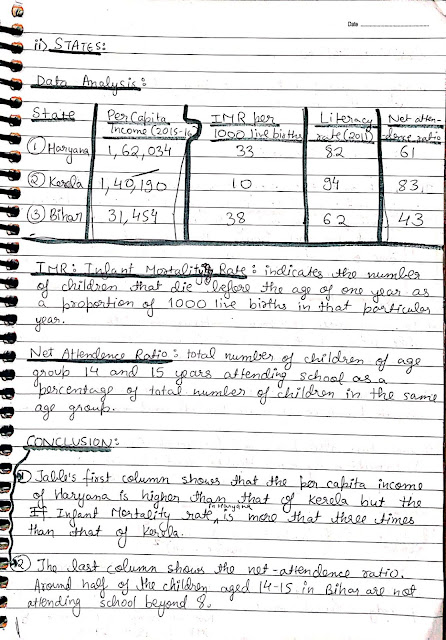 Date
ii) STATES:
Data Analysis:
State Per Capita Income (2015-16 IMR per 1000 live births Literacy rate (2011) Net atten-dence ratio
① Haryana 1,62,034 33 82 61
② Kerala 1,40,190 10 94 83
③ Bihar 31,454 38 62 43
IMR: Infant Mortality Rate: indicates the number
of children that die before the age of one year as
a proportion of 1000 live births in that particular
year.
Net Attendence Ratio: total number of children of age
group 14 and 15 years attending school as a
percentage of total number of children in the same
age group.
CONCLUSION:
1) Table's first column shows that the per capita income
of Haryana is higher than that of Kerela but the
Infant Mortality rate in Haryana is more that three times
than that of Kerela.
2) The last column shows the net-attendence ratio.
Around half of the children aged 14-15 in Bihar are not
attending school beyond 8.